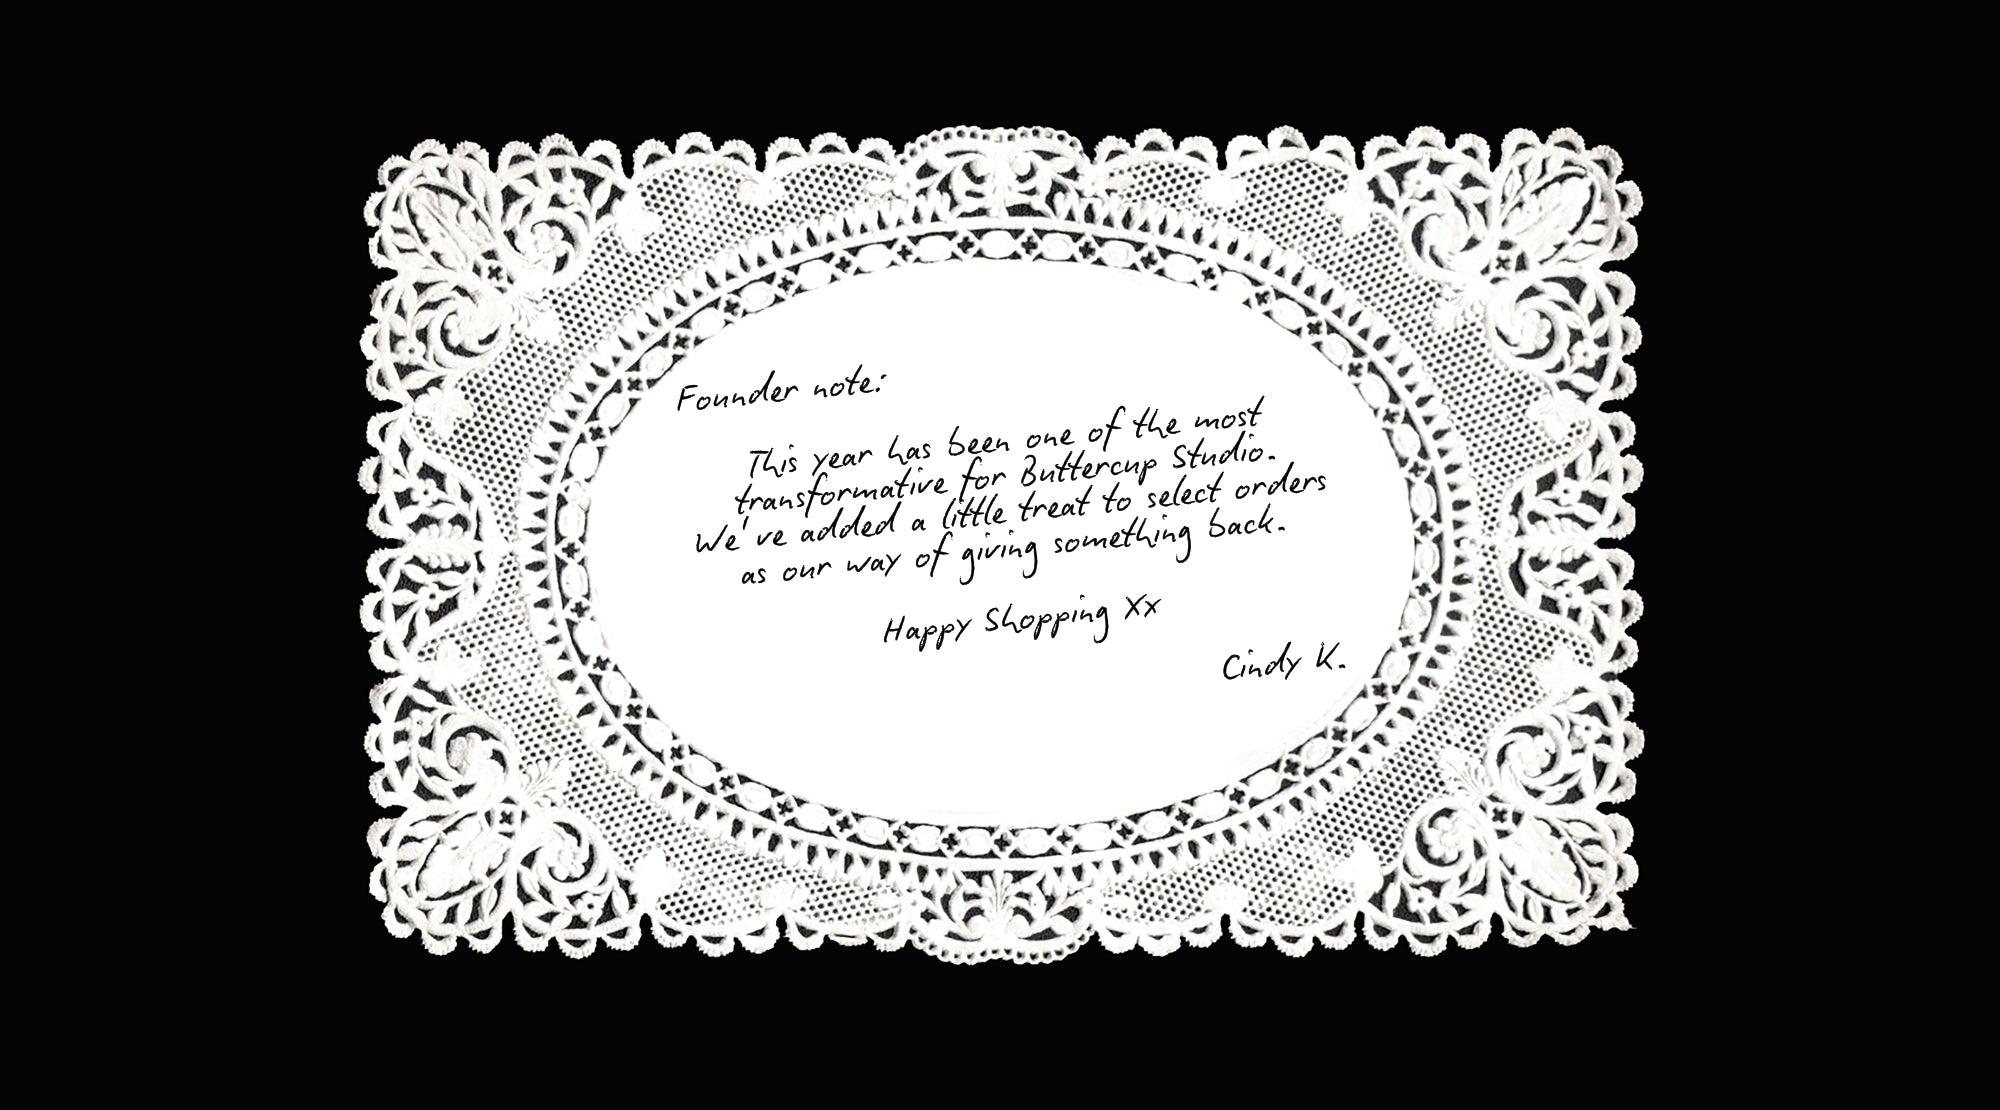 Founder note:
This year has been one of the most
transformative for Buttercup Studio.
We've added a little treat to select orders
as our way of giving something back.
Happy Shopping Xx
Cindy K.